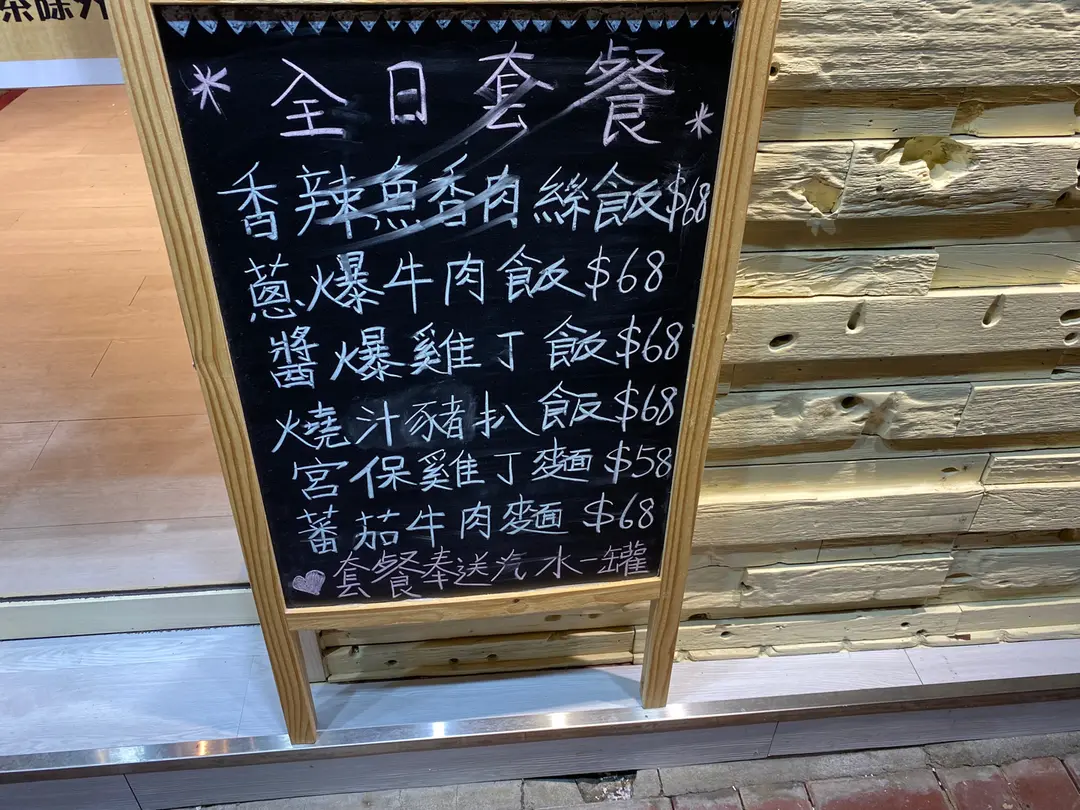 茶味外
* 全日套餐 *
香辣魚香肉絲飯$68
蔥爆牛肉飯$68
醬爆雞丁飯$68
燒汁豬扒飯$68
宮保雞丁麵$58
蕃茄牛肉麵$68
♥套餐奉送汽水一罐